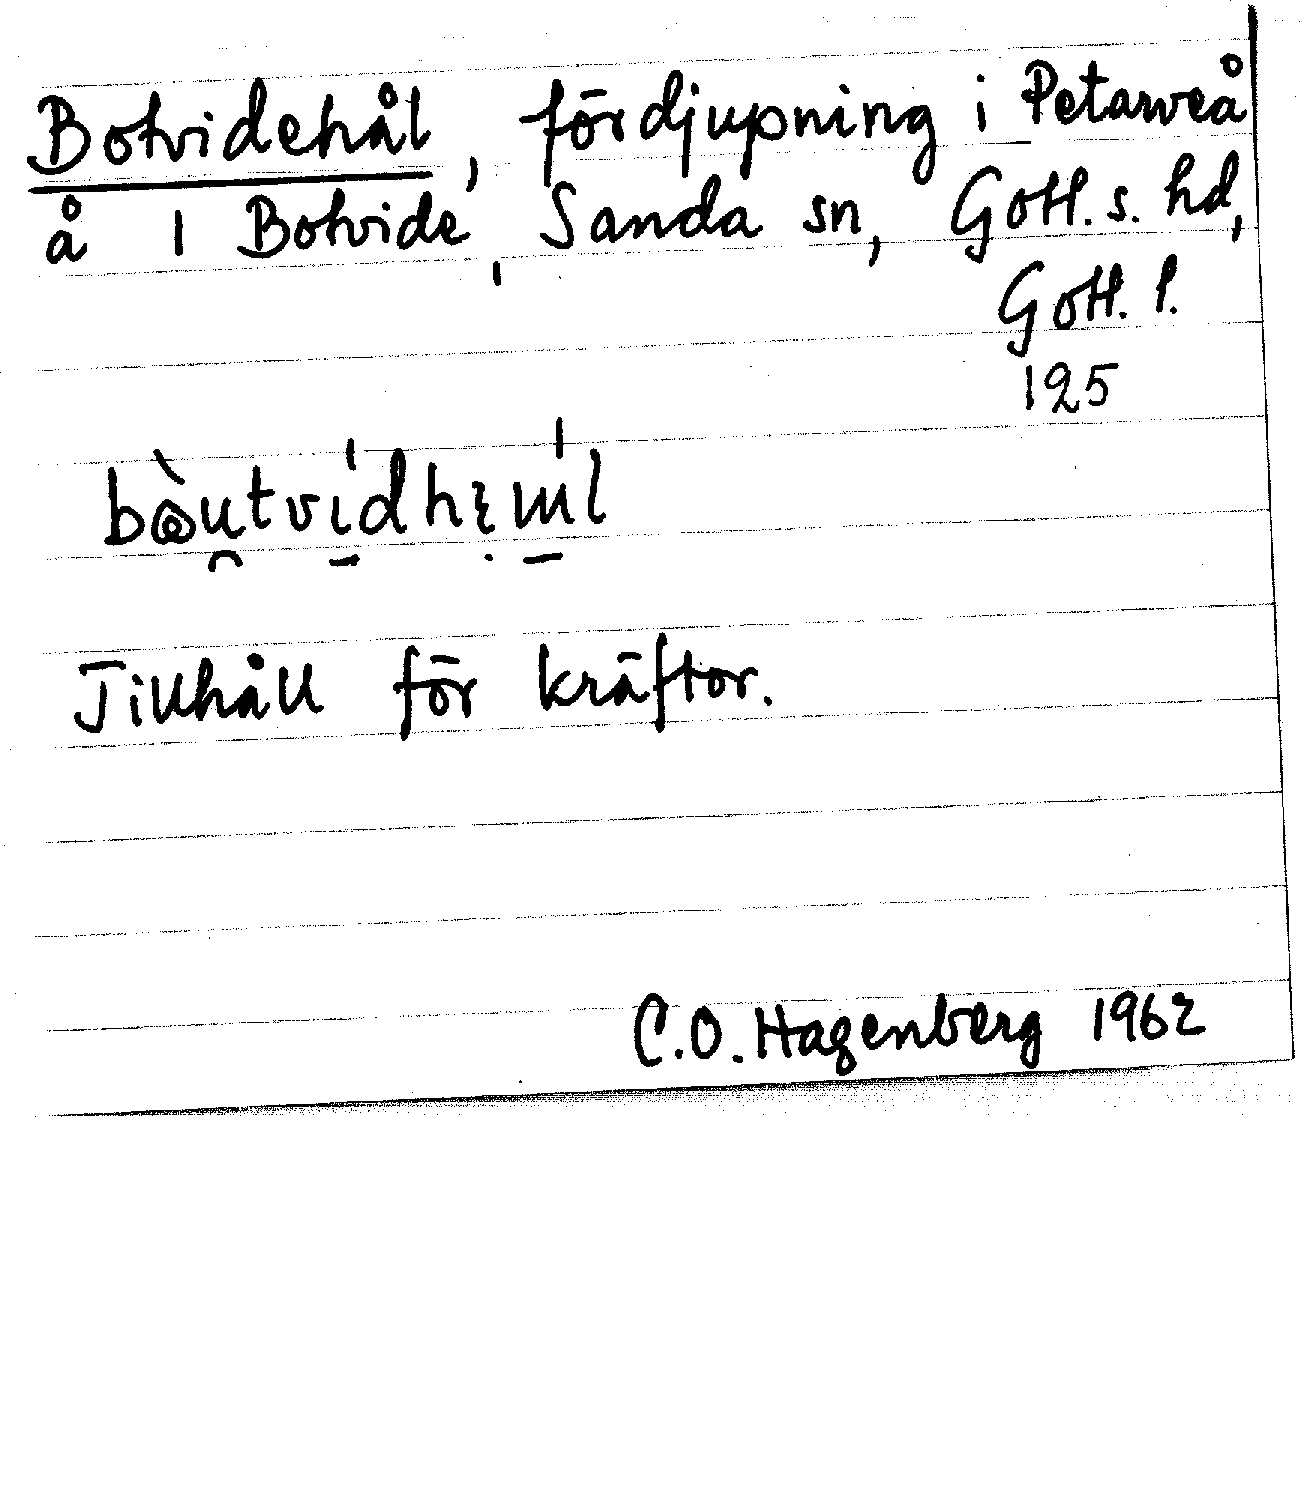 Botvidehål, fördjupning i Petarveå
å i Botvide, Sanda sn, Gotl. s. hd,
Gotl. l.
125
Tillhåll för kräftor.
C.O. Hagenberg 1962